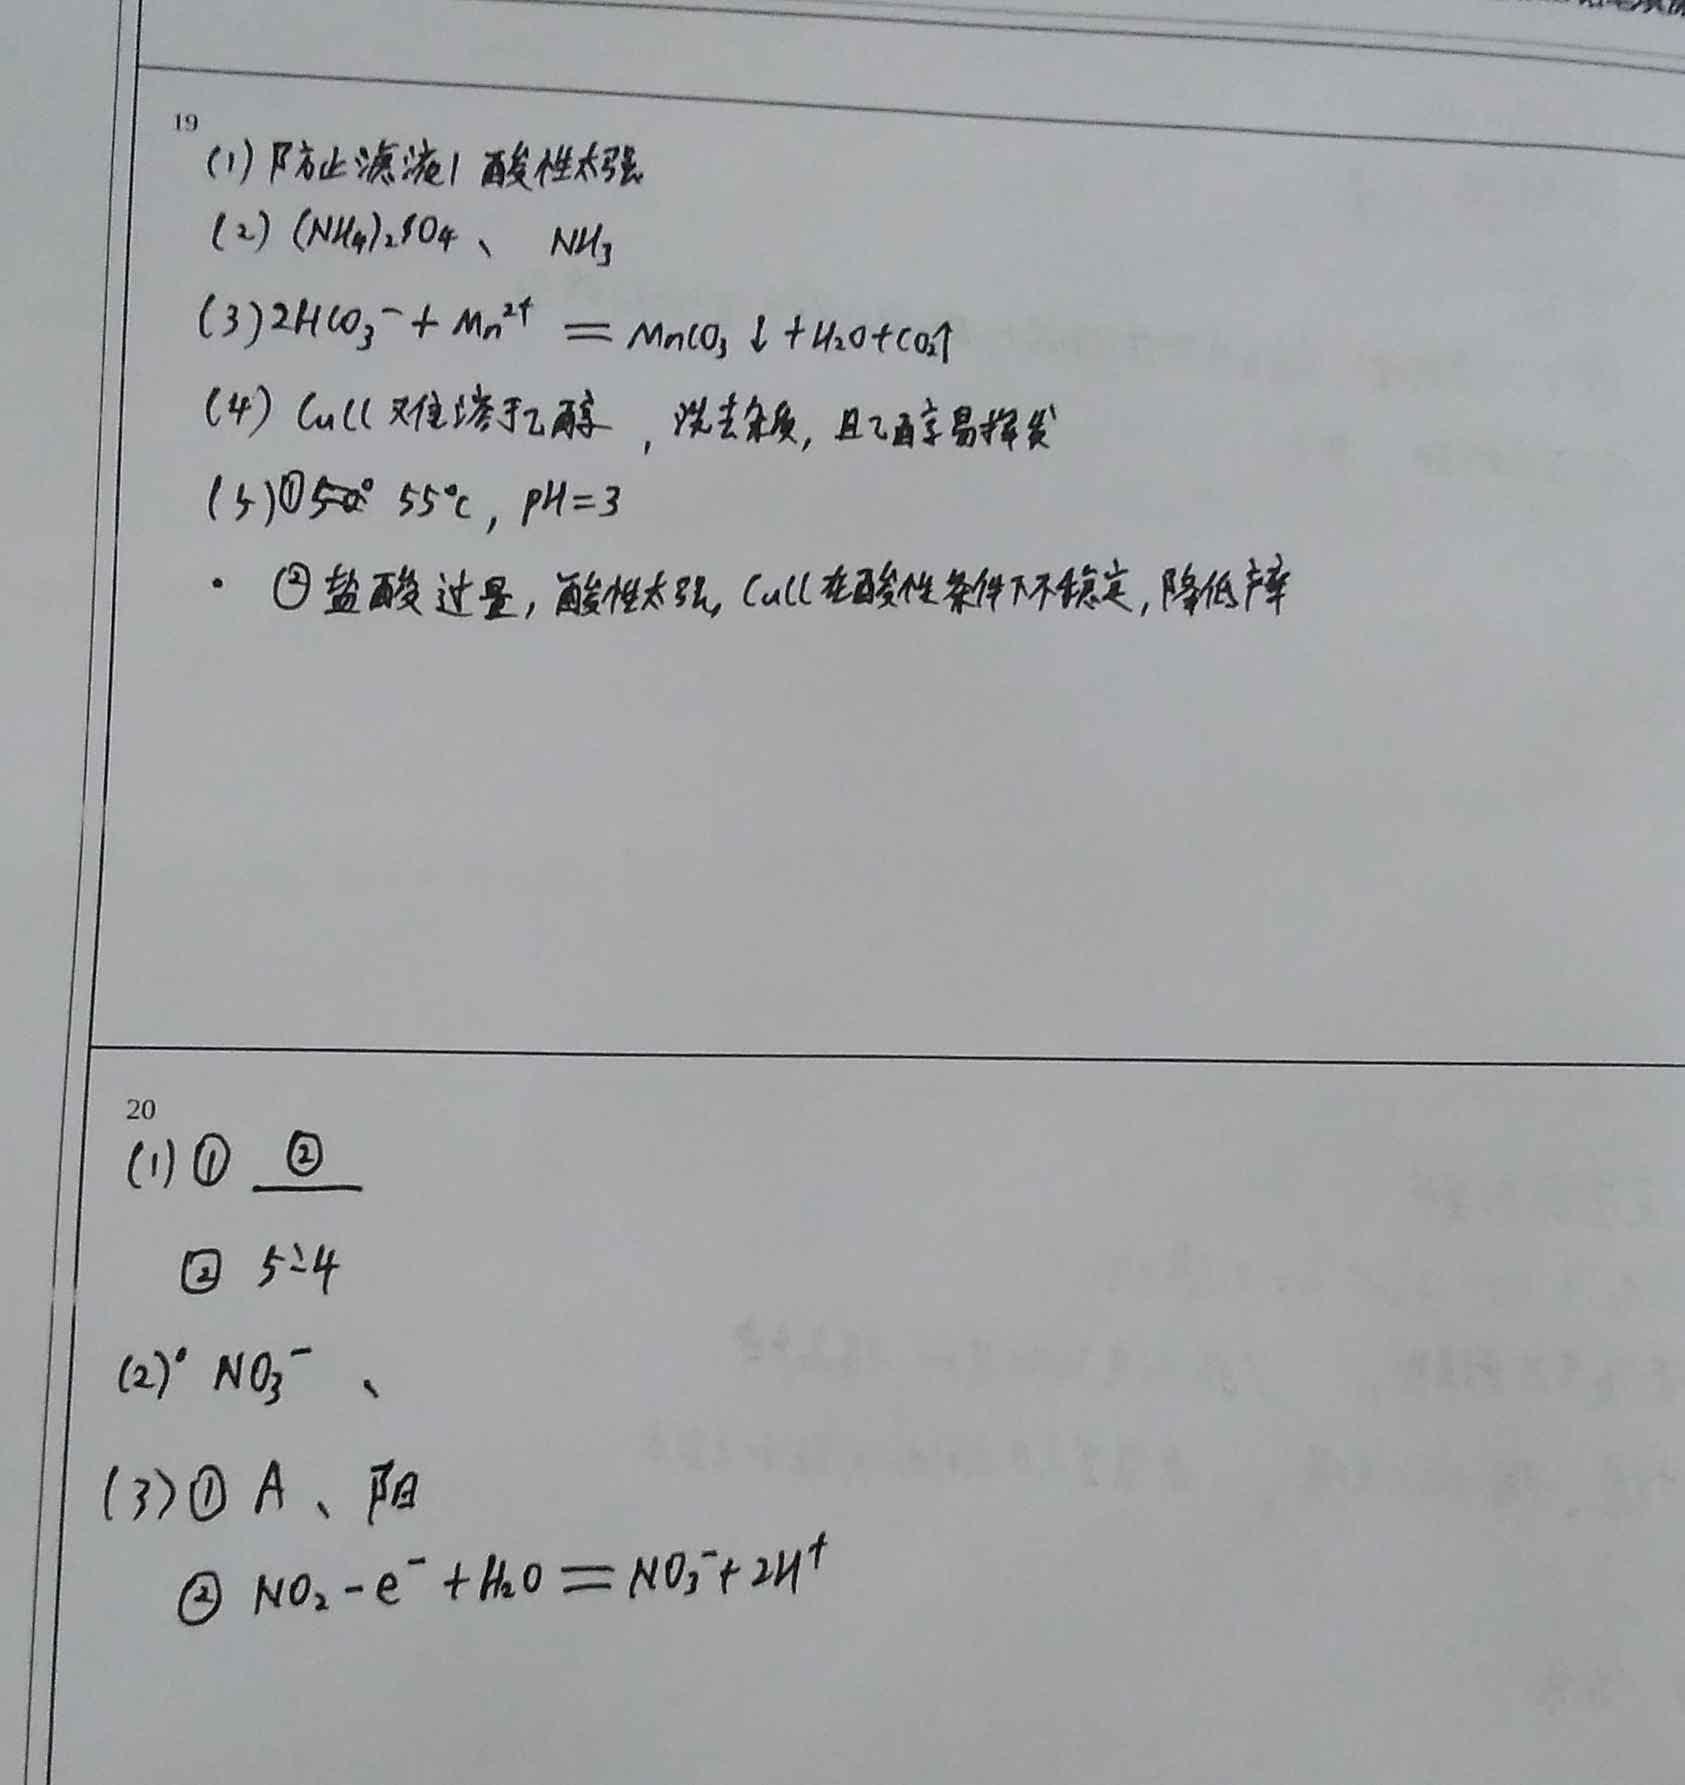 19
(1) 防止滤液1 酸性太强
(2) (NH₄)₂SO₄、 NH₃
(3) 2HCO₃⁻ + Mn²⁺ = MnCO₃↓ + H₂O + CO₂↑
(4) CuCl 难溶于乙醇, 洗去杂质, 且乙醇易挥发
(5) ① 55℃, pH=3
② 盐酸过量, 酸性太强, CuCl在酸性条件下不稳定, 降低产率
20
(1) ① ②
② 5:4
(2) NO₃⁻ 、
(3) ① A 、 阳
② NO₂ - e⁻ + H₂O = NO₃⁻ + 2H⁺